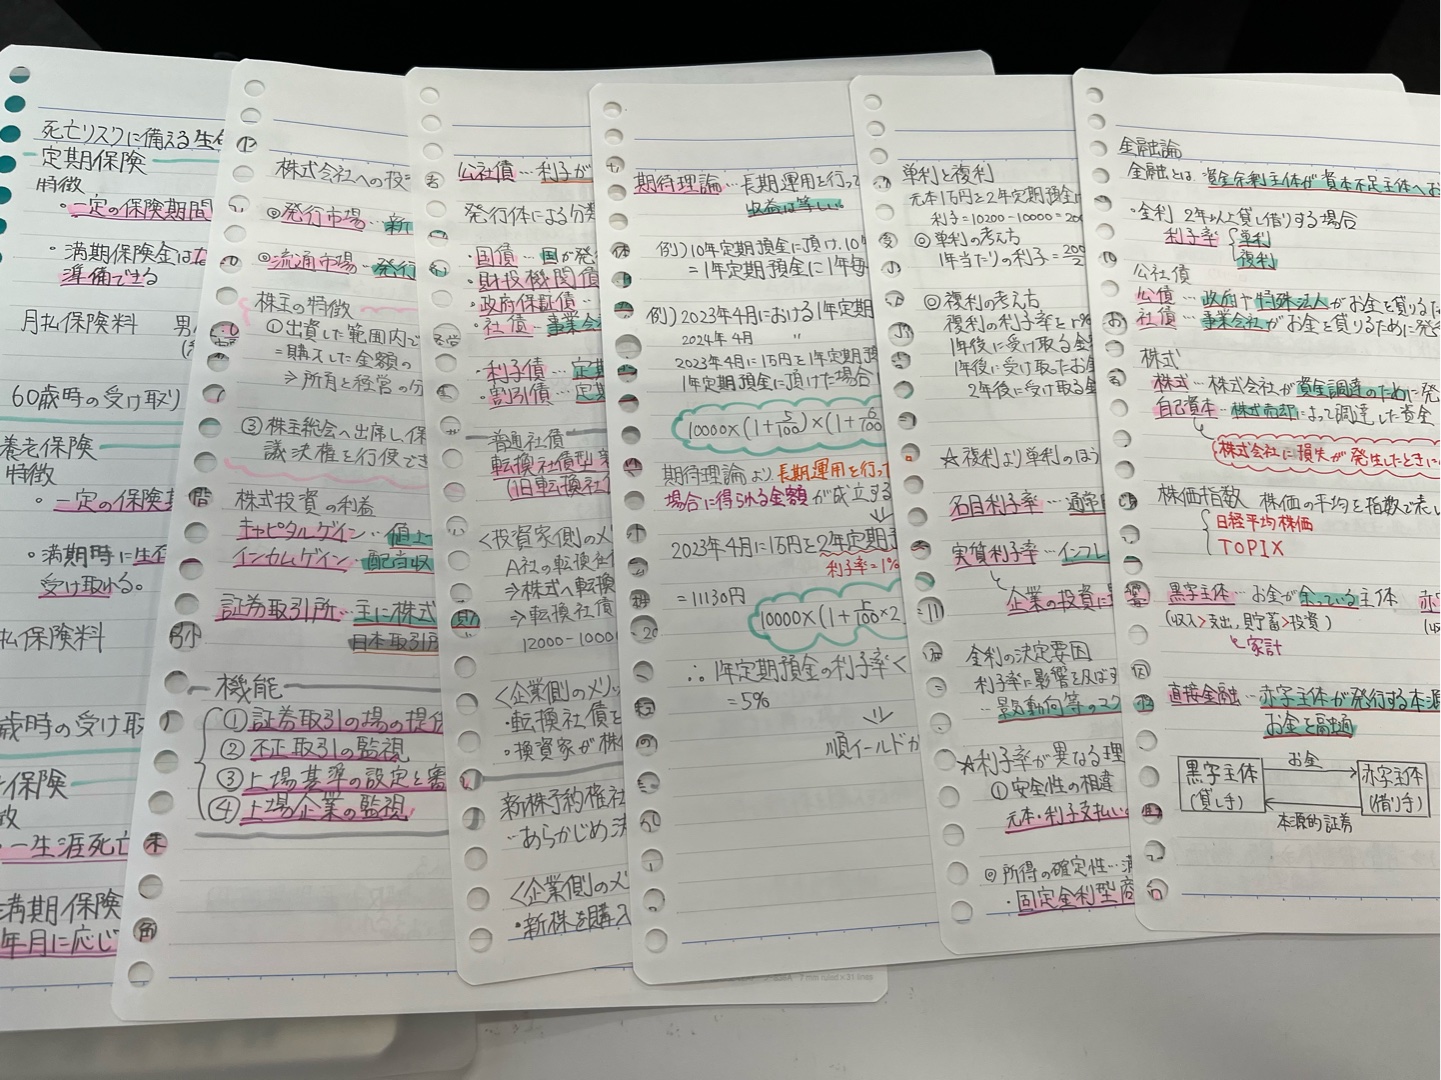 死亡リスクに備える生
定期保険
特徴
・一定の保険期間
・満期保険金は
準備できる
月払保険料 男
60歳時の受け取り
養老保険
特徴
・一定の保険
・満期時に生
受け取れる。
払保険料
歳時の受け取
保険
徴
・一生涯死亡
満期保険
年月に応じ
株式会社への投
◎発行市場…新
◎流通市場…発行
株主の特徴
①出資した範囲内で
=購入した金額の
⇒所有と経営の分
③株主総会へ出席し、保
議決権を行使でき
株式投資の利益
キャピタルゲイン…値上
インカムゲイン…配当収
証券取引所…主に株式
日本取引所
機能
①証券取引の場の提供
②不正取引の監視
③上場基準の設定と審
④上場企業の監視
公社債…利子が
発行体による分類
・国債…国が発
・財投機関債
・政府保証債…
・社債…事業会
・利子債…定期
・割引債…定
普通社債
転換社債型
(旧転換社
<投資家側のメリ
A社の転換社
⇒株式へ転換
⇒転換社債
12000-1000
<企業側のメリッ
・転換社債を
・投資家が株
新株予約権社
…あらかじめ決
<企業側のメ
・新株を購入
期待理論…長期運用を行っ
収益は等しい
例)10年定期預金に預け、10
=1年定期預金に1年毎
例)2023年4月における1年定期
2024年4月 〃
2023年4月に1万円を1年定期預
1年定期預金に預けた場合
10000×(1+5/100)×(1+6/100
期待理論より長期運用を行っ
場合に得られる金額が成立する
2023年4月に1万円を2年定期
利子率=1%
=11130円
10000×(1+r/100×2
∴1年定期預金の利子率<
=5%
順イールドカ
単利と複利
元本1万円を2年定期預金
利子=10200-10000=20
◎単利の考え方
1年当たりの利子=200/2
◎複利の考え方
複利の利子率をr%
1年後に受け取る金
1年後に受け取ったお金
2年後に受け取る金
☆複利より単利のほう
名目利子率…通常
実質利子率…インフレ
企業の投資に
金利の決定要因
利子率に影響を及ぼす
…景気動向等のマク
☆利子率が異なる理
①安全性の相違
元本・利子支払い
◎所得の確定性…満
・固定金利型商
金融論
金融とは、資金余剰主体が資本不足主体へお
・金利 2年以上貸し借りする場合
利子率 単利
複利
公社債
公債…政府や特殊法人がお金を借りるた
社債…事業会社がお金を借りるために発
株式
株式…株式会社が資金調達のために発
自己資本…株式売却によって調達した資金
株式会社に損失が発生したときに
株価指数 株価の平均を指数で表し
日経平均株価
TOPIX
黒字主体…お金が余っている主体 赤
(収入>支出,貯蓄>投資)
家計
直接金融…赤字主体が発行する本源
お金を融通
黒字主体 お金 赤字主体
(貸し手) (借り手)
本源的証券
7 mm ruled × 31 lines